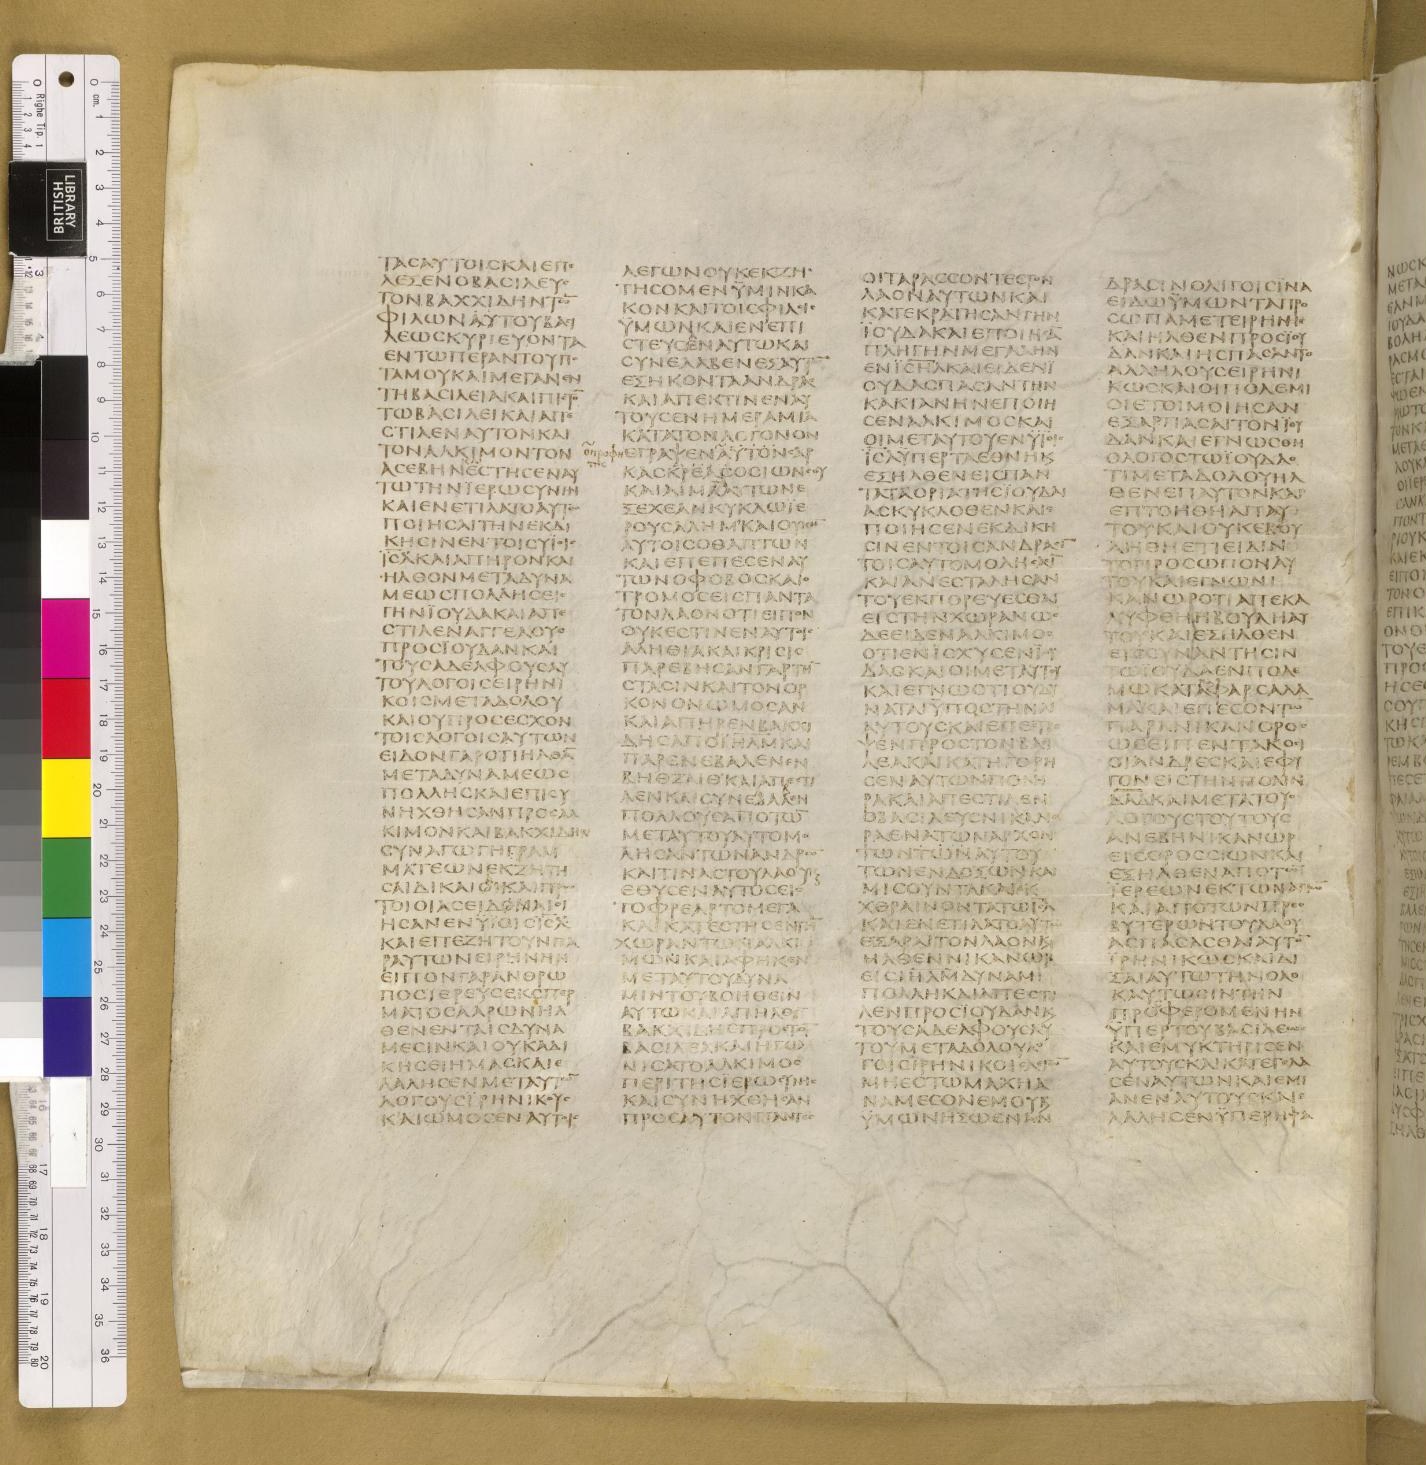 ΤΑϹΑΥΤΟΙϹΚΑΙΕΠΕ
ΛΕΞΕΝΟΒΑϹΙΛΕΥϹ
ΤΟΝΒΑΧΧΙΔΗΝΤΩ̅
ΦΙΛΩΝΑΥΤΟΥΒΑϹΙ
ΛΕΩϹΚΥΡΙΕΥΟΝΤΑ
ΕΝΤΩΠΕΡΑΝΤΟΥΠΟ
ΤΑΜΟΥΚΑΙΜΕΓΑΝΕΝ
ΤΗΒΑϹΙΛΕΙΑΚΑΙΠΙϹΤΟ̅
ΤΩΒΑϹΙΛΕΙΚΑΙΑΠΕ
ϹΤΙΛΕΝΑΥΤΟΝΚΑΙ
ΤΟΝΑΛΚΙΜΟΝΤΟΝ
ΑϹΕΒΗΝΕϹΤΗϹΕΝΑΥ
ΤΩΤΗΝΪΕΡΩϹΥΝΗΝ
ΚΑΙΕΝΕΤΙΛΑΤΟΑΥΤΩ
ΠΟΙΗϹΑΙΤΗΝΕΚΔΙ
ΚΗϹΙΝΕΝΤΟΙϹΥΪΟΙϹ
ΪϹ̅Λ̅ΚΑΙΑΠΗΡΟΝΚΑΙ
ΗΛΘΟΝΜΕΤΑΔΥΝΑ
ΜΕΩϹΠΟΛΛΗϹΕΙϹ
ΓΗΝΪΟΥΔΑΚΑΙΑΠΕ
ϹΤΙΛΕΝΑΓΓΕΛΟΥϹ
ΠΡΟϹΪΟΥΔΑΝΚΑΙ
ΤΟΥϹΑΔΕΛΦΟΥϹΑΥ
ΤΟΥΛΟΓΟΙϹΕΙΡΗΝΙ
ΚΟΙϹΜΕΤΑΔΟΛΟΥ
ΚΑΙΟΥΠΡΟϹΕϹΧΟΝ
ΤΟΙϹΛΟΓΟΙϹΑΥΤΩΝ
ΕΙΔΟΝΓΑΡΟΤΙΗΛΘΑ̅
ΜΕΤΑΔΥΝΑΜΕΩϹ
ΠΟΛΛΗϹΚΑΙΕΠΙϹΥ
ΝΗΧΘΗϹΑΝΠΡΟϹΑΛ
ΚΙΜΟΝΚΑΙΒΑΚΧΙΔΗΝ
ϹΥΝΑΓΩΓΗΓΡΑΜ
ΜΑΤΕΩΝΕΚΖΗΤΗ
ϹΑΙΔΙΚΑΙΑΚΑΙΠΡΩ
ΤΟΙΟΙΑϹΕΙΔΑΙΟΙ
ΗϹΑΝΕΝΥΪΟΙϹΪϹ̅Λ̅
ΚΑΙΕΠΕΖΗΤΟΥΝΠΑ
ΡΑΥΤΩΝΕΙΡΗΝΗΝ
ΕΙΠΟΝΓΑΡΑΝΘΡΩ
ΠΟϹΪΕΡΕΥϹΕΚϹΠΕΡ
ΜΑΤΟϹΑΑΡΩΝΗΛ
ΘΕΝΕΝΤΑΙϹΔΥΝΑ
ΜΕϹΙΝΚΑΙΟΥΚΑΔΙ
ΚΗϹΕΙΗΜΑϹΚΑΙΕ
ΛΑΛΗϹΕΝΜΕΤΑΥΤΩ̅
ΛΟΓΟΥϹΪΡΗΝΙΚΟΥϹ
ΚΑΙΩΜΟϹΕΝΑΥΤΟΙϹ
ΛΕΓΩΝΟΥΚΕΚΖΗ
ΤΗϹΟΜΕΝΫΜΙΝΚΑ
ΚΟΝΚΑΙΤΟΙϹΦΙΛΟΙϹ
ΫΜΩΝΚΑΙΕΝΕΠΙ
ϹΤΕΥϹΕΝΑΥΤΩΚΑΙ
ϹΥΝΕΛΑΒΕΝΕΞΑΥΤΩ̅
ΕΞΗΚΟΝΤΑΑΝΔΡΑϹ
ΚΑΙΑΠΕΚΤΙΝΕΝΑΥ
ΤΟΥϹΕΝΗΜΕΡΑΜΙΑ
ΚΑΤΑΤΟΝΛΟΓΟΝΟΝ
ΕΓΡΑΨΕΝΑΥΤΟΝϹΑΡ
ΚΑϹΟϹΙΩΝϹΟΥ
ΚΑΙΑΙΜΑΑΥΤΩΝΕ
ΞΕΧΕΑΝΚΥΚΛΩΪΕ
ΡΟΥϹΑΛΗΜΚΑΙΟΥΚΗ̅
ΑΥΤΟΙϹΟΘΑΠΤΩΝ
ΚΑΙΕΠΕΠΕϹΕΝΑΥ
ΤΩΝΟΦΟΒΟϹΚΑΙΟ
ΤΡΟΜΟϹΕΙϹΠΑΝΤΑ
ΤΟΝΛΑΟΝΟΤΙΕΙΠΟΝ
ΟΥΚΕϹΤΙΝΕΝΑΥΤΟΙϹ
ΑΛΗΘΙΑΚΑΙΚΡΙϹΙϹ
ΠΑΡΕΒΗϹΑΝΓΑΡΤΗ̅
ϹΤΑϹΙΝΚΑΙΤΟΝΟΡ
ΚΟΝΟΝΩΜΟϹΑΝ
ΚΑΙΑΠΗΡΕΝΒΑΚΧΙ
ΔΗϹΑΠΟΪΗΛΜΚΑΙ
ΠΑΡΕΝΕΒΑΛΕΝΕΝ
ΒΗΘΖΑΙΘΚΑΙΑΠΕϹΤΙ
ΛΕΝΚΑΙϹΥΝΕΛΑΒΕΝ
ΠΟΛΛΟΥϹΑΠΟΤΩ̅
ΜΕΤΑΥΤΟΥΑΥΤΟΜΟ
ΛΗϹΑΝΤΩΝΑΝΔΡΩ̅
ΚΑΙΤΙΝΑϹΤΟΥΛΑΟΥΚΑΙ
ΕΘΥϹΕΝΑΥΤΟΥϹΕΙϹ
ΤΟΦΡΕΑΡΤΟΜΕΓΑ
ΚΑΙΚΑΤΕϹΤΗϹΕΝΤΗ̅
ΧΩΡΑΝΤΩΑΛΚΙ
ΜΩΚΑΙΑΦΗΚΕΝ
ΜΕΤΑΥΤΟΥΔΥΝΑ
ΜΙΝΤΟΥΒΟΗΘΕΙΝ
ΑΥΤΩΚΑΙΑΠΗΛΘΕΝ
ΒΑΚΧΙΔΗϹΠΡΟϹΤΟ̅
ΒΑϹΙΛΕΑΚΑΙΗΓΩ
ΝΙϹΑΤΟΑΛΚΙΜΟϹ
ΠΕΡΙΤΗϹΪΕΡΩϹΥΝΗϹ
ΚΑΙϹΥΝΗΧΘΗϹΑΝ
ΠΡΟϹΑΥΤΟΝΠΑΝΤΕϹ
ΟΙΤΑΡΑϹϹΟΝΤΕϹΤΟΝ
ΛΑΟΝΑΥΤΩΝΚΑΙ
ΚΑΤΕΚΡΑΤΗϹΑΝΓΗΝ
ΪΟΥΔΑΚΑΙΕΠΟΙΗϹΑ̅
ΠΛΗΓΗΝΜΕΓΑΛΗΝ
ΕΝΪϹ̅Η̅Λ̅ΚΑΙΕΙΔΕΝΪ
ΟΥΔΑϹΠΑϹΑΝΤΗΝ
ΚΑΚΙΑΝΗΝΕΠΟΙΗ
ϹΕΝΑΛΚΙΜΟϹΚΑΙ
ΟΙΜΕΤΑΥΤΟΥΕΝΥΪΟΙϹ
ΪϹ̅Λ̅ΥΠΕΡΤΑΕΘΝΗΚ
ΕΞΗΛΘΕΝΕΙϹΠΑΝ
ΤΑΤΑΟΡΙΑΤΗϹΪΟΥΔΑΙ
ΑϹΚΥΚΛΟΘΕΝΚΑΙΕ
ΠΟΙΗϹΕΝΕΚΔΙΚΗ
ϹΙΝΕΝΤΟΙϹΑΝΔΡΑϹΙ̅
ΤΟΙϹΑΥΤΟΜΟΛΗϹΑϹΙ
ΚΑΙΑΝΕϹΤΑΛΗϹΑΝ
ΤΟΥΕΚΠΟΡΕΥΕϹΘΑΙ
ΕΙϹΤΗΝΧΩΡΑΝΩϹ
ΔΕΕΙΔΕΝΑΛΚΙΜΟϹ
ΟΤΙΕΝΪϹΧΥϹΕΝΪΟΥ
ΔΑϹΚΑΙΟΙΜΕΤΑΥΤΟΥ
ΚΑΙΕΓΝΩΟΤΙΟΥΔΥ
ΝΑΤΑΙΫΠΟϹΤΗΝΑΙ
ΑΥΤΟΥϹΚΑΙΕΠΕϹΤΡΕ
ΨΕΝΠΡΟϹΤΟΝΒΑϹΙ
ΛΕΑΚΑΙΚΑΤΗΓΟΡΗ
ϹΕΝΑΥΤΩΝΠΟΝΗ
ΡΑΚΑΙΑΠΕϹΤΙΛΕΝ
ΟΒΑϹΙΛΕΥϹΝΙΚΑΝΟ
ΡΑΕΝΑΤΩΝΑΡΧΟΝ
ΤΩΝΤΩΝΑΥΤΟΥ
ΤΩΝΕΝΔΟΞΩΝΚΑΙ
ΜΙϹΟΥΝΤΑΚΑΙΕ
ΧΘΡΑΙΝΟΝΤΑΤΩΪϹ̅Λ̅
ΚΑΙΕΝΕΤΙΛΑΤΟΑΥΤΩ
ΕΞΑΡΑΙΤΟΝΛΑΟΝΚΑΙ
ΗΛΘΕΝΝΙΚΑΝΩΡ
ΕΙϹΪΗΛΜΔΥΝΑΜΙ
ΠΟΛΛΗΚΑΙΑΠΕϹΤΙ
ΛΕΝΠΡΟϹΪΟΥΔΑΝΚ
ΤΟΥϹΑΔΕΛΦΟΥϹΑΥ
ΤΟΥΜΕΤΑΔΟΛΟΥΛΟ
ΓΟΙϹΪΡΗΝΙΚΟΙϹΛΕΓΩ̅
ΜΗΕϹΤΩΜΑΧΗΑ
ΝΑΜΕϹΟΝΕΜΟΥΚ
ΫΜΩΝΗΞΩΕΝΑΝ
ΔΡΑϹΙΝΟΛΙΓΟΙϹΪΝΑ
ΕΙΔΩΫΜΩΝΤΑΠΡΟ
ϹΩΠΑΜΕΤΕΙΡΗΝΗϹ
ΚΑΙΗΛΘΕΝΠΡΟϹΪΟΥ
ΔΑΝΚΑΙΗϹΠΑϹΑΝΤΟ
ΑΛΛΗΛΟΥϹΕΙΡΗΝΙ
ΚΩϹΚΑΙΟΙΠΟΛΕΜΙ
ΟΙΕΤΟΙΜΟΙΗϹΑΝ
ΕΞΑΡΠΑϹΑΙΤΟΝΪΟΥ
ΔΑΝΚΑΙΕΓΝΩϹΘΗ
ΟΛΟΓΟϹΤΩΪΟΥΔΑΟ
ΤΙΜΕΤΑΔΟΛΟΥΗΛ
ΘΕΝΕΠΑΥΤΟΝΚΑΙ
ΕΠΤΟΗΘΗΑΠΑΥ
ΤΟΥΚΑΙΟΥΚΕΒΟΥ
ΛΗΘΗΕΤΙΕΙΔΙΝ
ΤΟΠΡΟϹΩΠΟΝΑΥ
ΤΟΥΚΑΙΕΓΝΩΝΙ
ΚΑΝΩΡΟΤΙΑΠΕΚΑ
ΛΥΦΘΗΗΒΟΥΛΗΑΥ
ΤΟΥΚΑΙΕΞΗΛΘΕΝ
ΕΙϹϹΥΝΑΝΤΗϹΙΝ
ΤΩΪΟΥΔΑΕΝΠΟΛΕ
ΜΩΚΑΤΑΧΑΦΑΡϹΑΛΑ
ΜΑΚΑΙΕΠΕϹΟΝΤΩ̅
ΠΑΡΑΝΙΚΑΝΟΡΟϹ
ΩϹΕΙΠΕΝΤΑΚΟϹΙ
ΟΙΑΝΔΡΕϹΚΑΙΕΦΥ
ΓΟΝΕΙϹΤΗΝΠΟΛΙΝ
Δ̅Α̅Δ̅ΚΑΙΜΕΤΑΤΟΥϹ
ΛΟΓΟΥϹΤΟΥΤΟΥϹ
ΑΝΕΒΗΝΙΚΑΝΩΡ
ΕΙϹΟΡΟϹϹΙΩΝΚΑΙ
ΕΞΗΛΘΕΝΑΠΟΤΩ̅
ΪΕΡΕΩΝΕΚΤΩΝΑΓΙΩ̅
ΚΑΙΑΠΟΤΩΝΠΡΕϹ
ΒΥΤΕΡΩΝΤΟΥΛΑΟΥ
ΑϹΠΑϹΑϹΘΑΙΑΥΤΟ̅
ΪΡΗΝΙΚΩϹΚΑΙΔΙ
ΞΑΙΑΥΤΩΤΗΝΟΛΟ
ΚΑΥΤΩϹΙΝΤΗΝ
ΠΡΟΦΕΡΟΜΕΝΗΝ
ΫΠΕΡΤΟΥΒΑϹΙΛΕΩϹ
ΚΑΙΕΜΥΚΤΗΡΙϹΕΝ
ΑΥΤΟΥϹΚΑΙΚΑΤΕΓΕΛΑ
ϹΕΝΑΥΤΩΝΚΑΙΕΜΙ
ΑΝΕΝΑΥΤΟΥϹΚΑΙΕ
ΛΑΛΗϹΕΝΫΠΕΡΗΦΑ